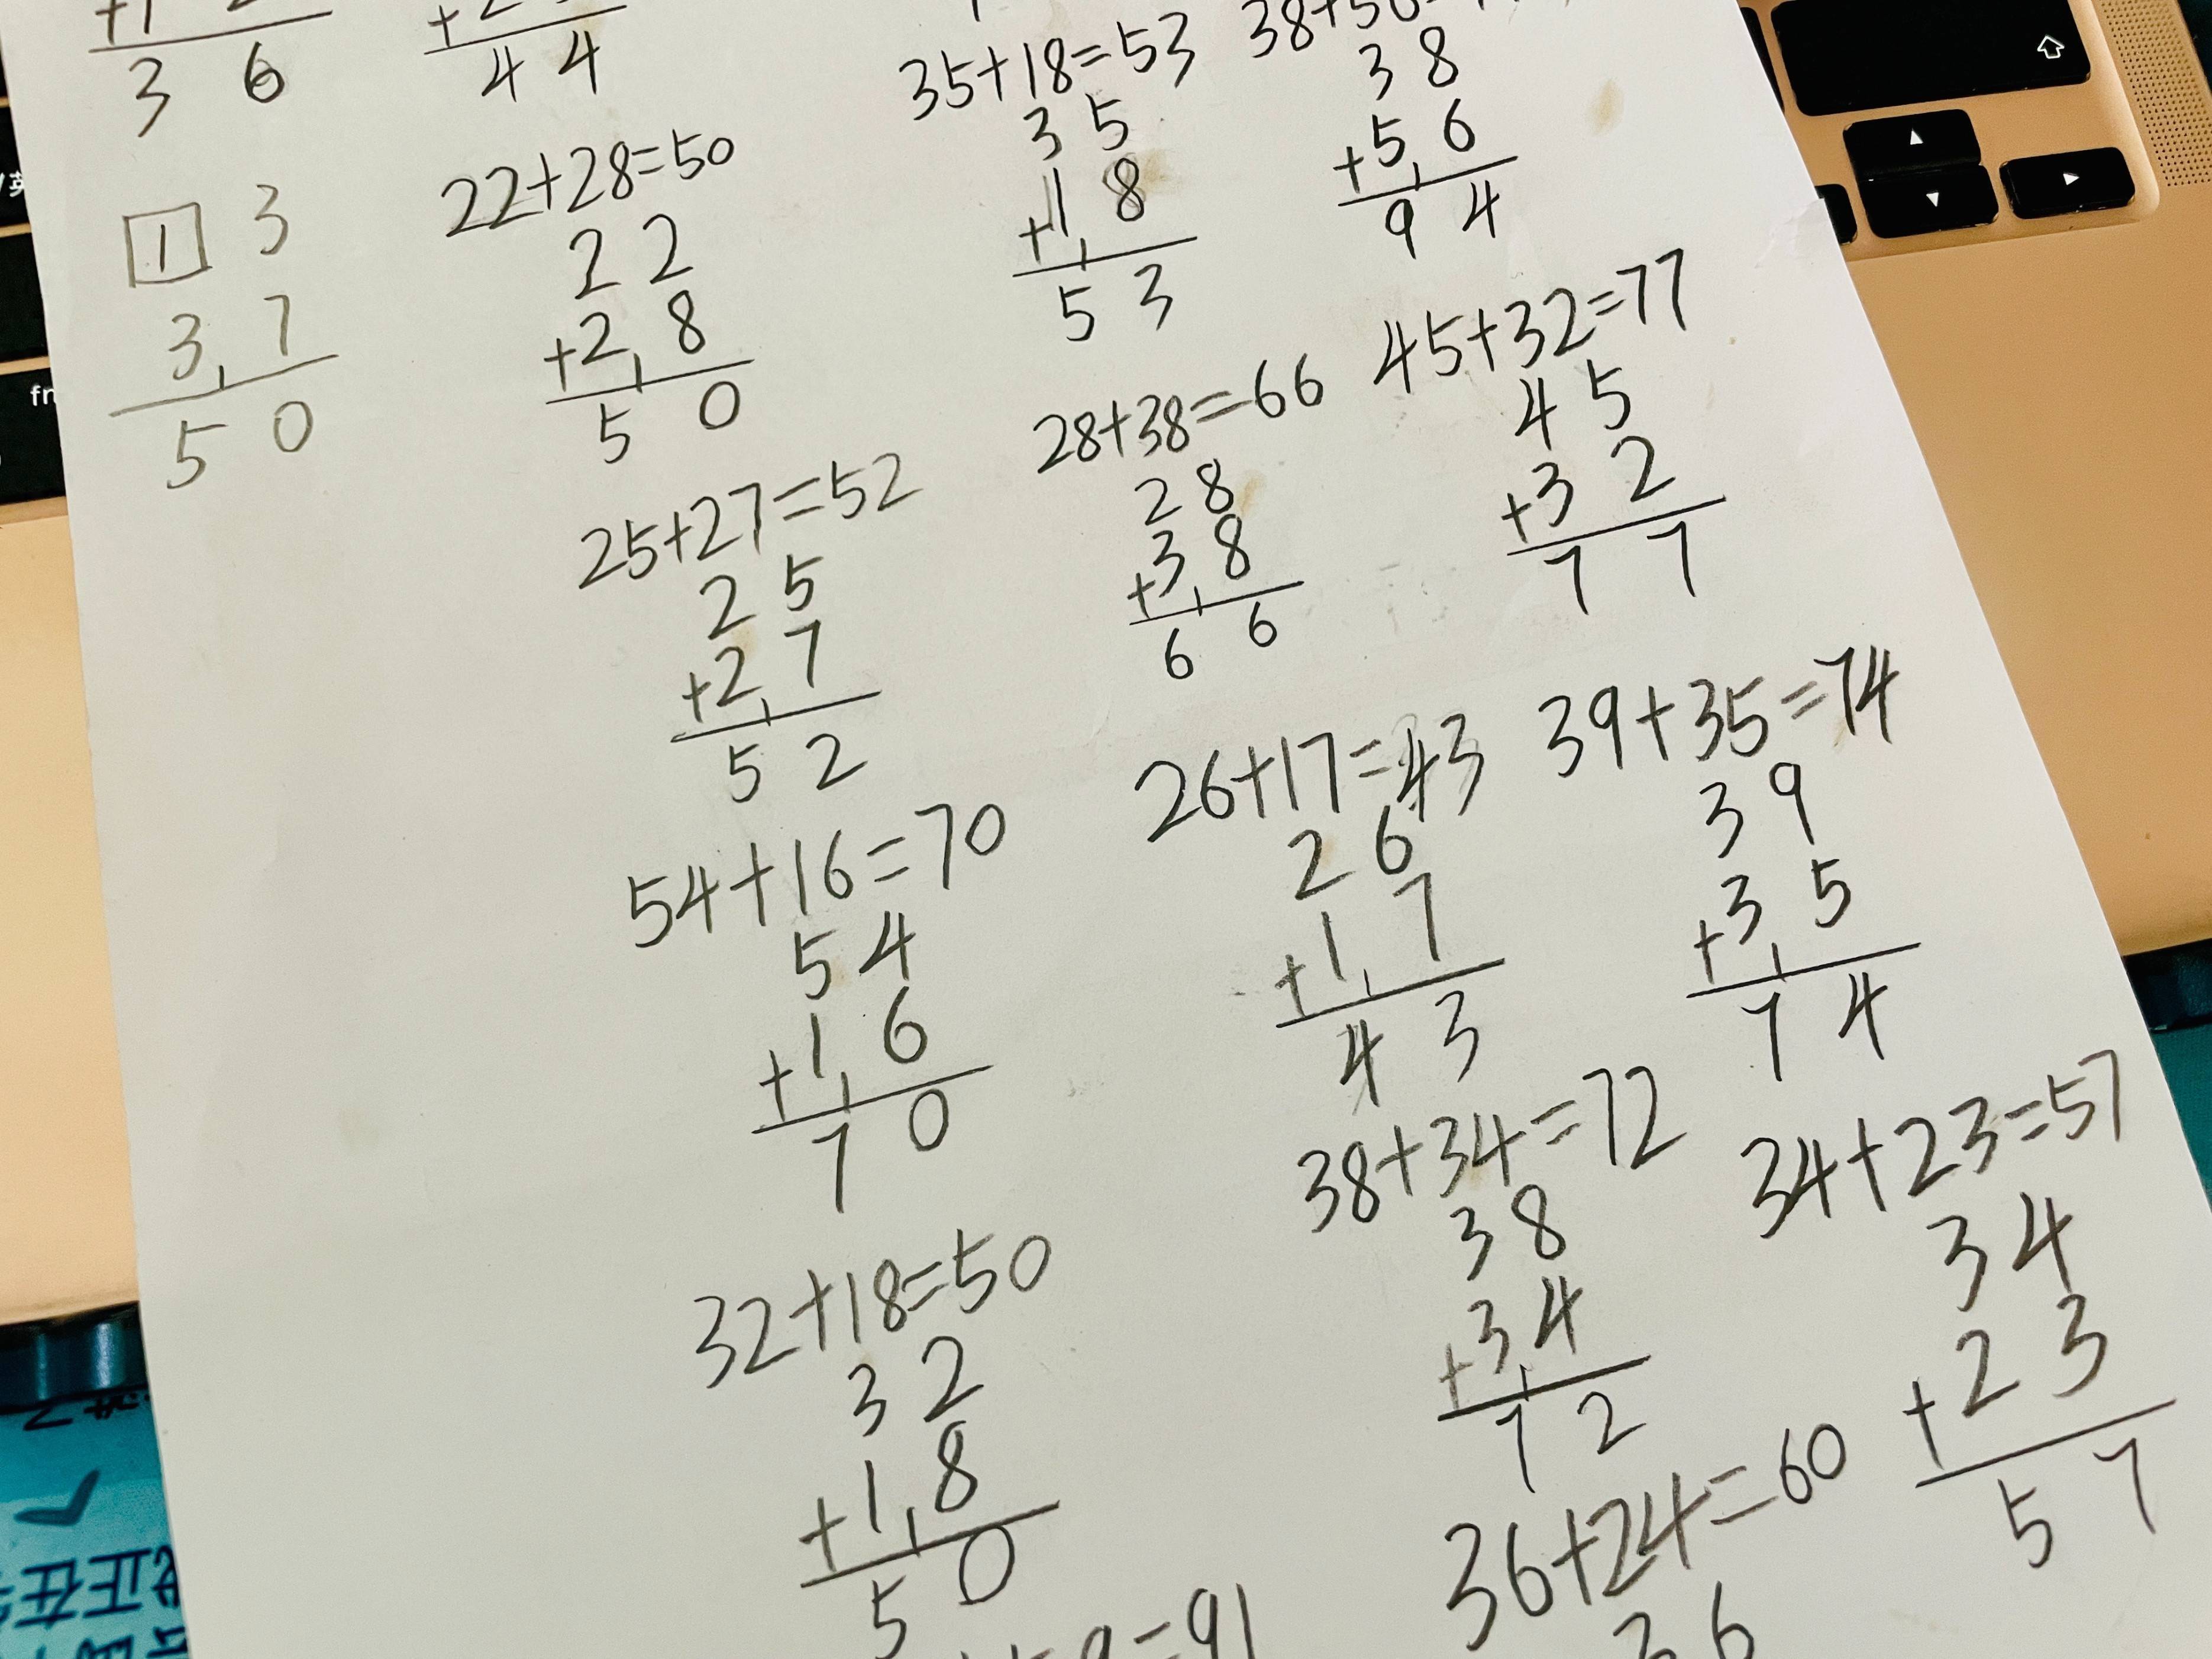 3 6
4 4
1 3
3 7
5 0
22+28=50
2 2
+2 8
5 0
25+27=52
2 5
+2 7
5 2
54+16=70
5 4
+1 6
7 0
32+18=50
3 2
+1 8
5 0
=91
35+18=53
3 5
+1 8
5 3
28+38=66
2 8
+3 8
6 6
26+17=43
2 6
+1 7
4 3
38+34=72
3 8
+3 4
7 2
36+24=60
3 6
3 8
+5 6
9 4
45+32=77
4 5
+3 2
7 7
39+35=74
3 9
+3 5
7 4
34+23=57
3 4
+2 3
5 7
fn
正在